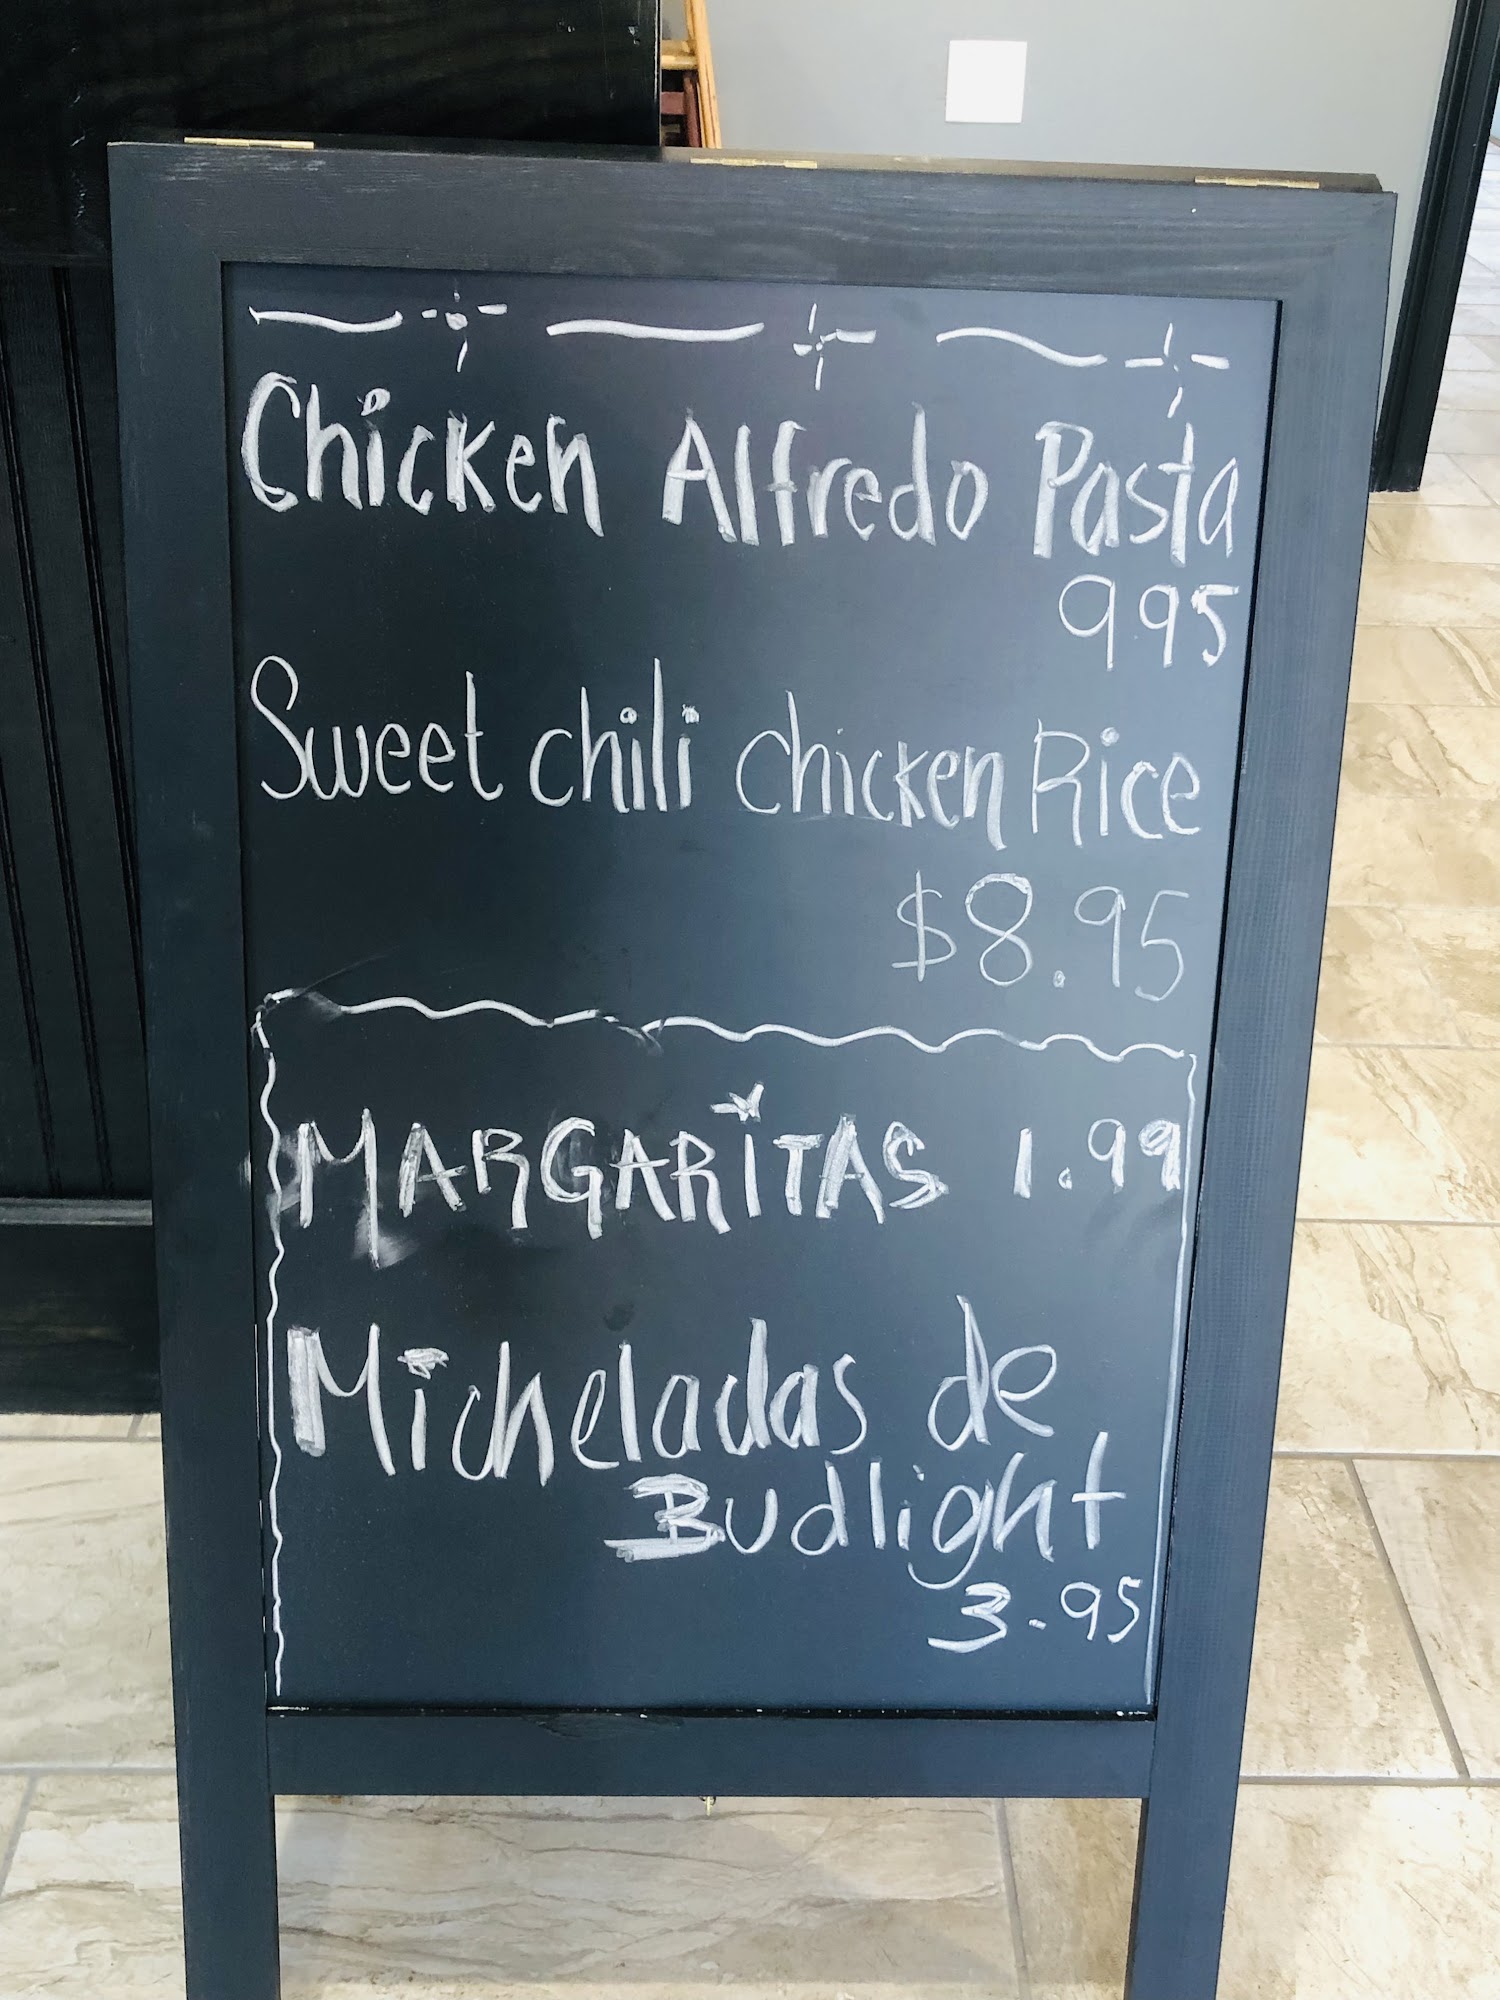 Chicken Alfredo Pasta
995
Sweet chili chicken Rice
$8.95
MARGARITAS 1.99
Micheladas de
Budlight
3.95